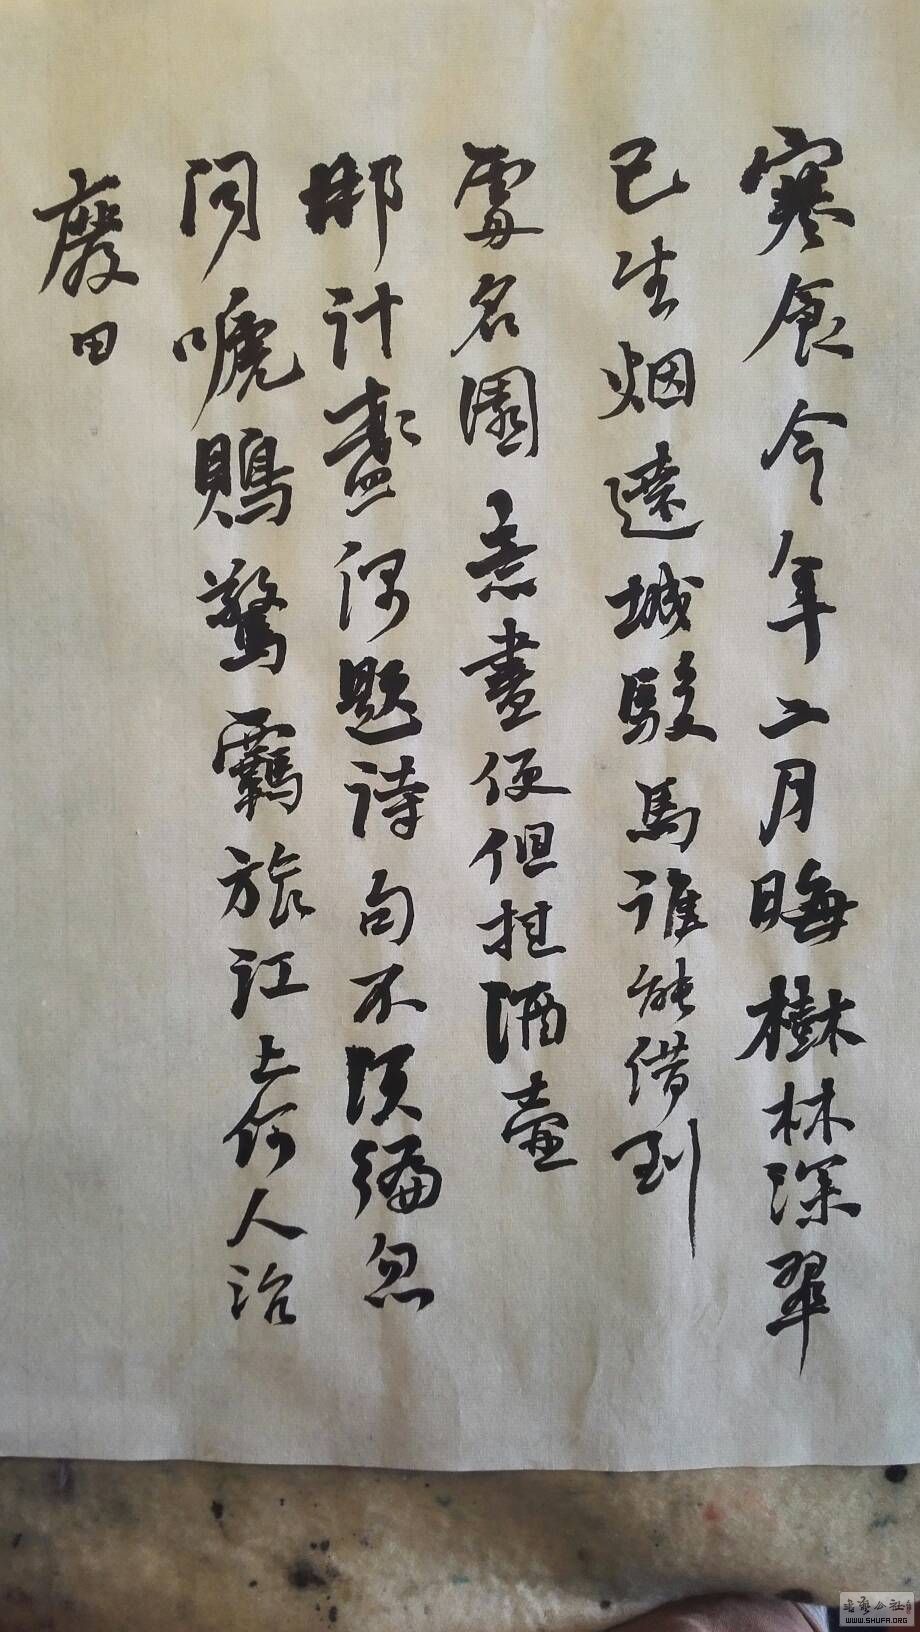 寒食今年二月晦樹林深翠
已生烟遶城駿馬誰能借到
處名園意盡便但挂酒壺
那計盞偶題詩句不須編忽
聞啼鵙驚羈旅江上何人治
廢田
WWW.SHUFA.ORG